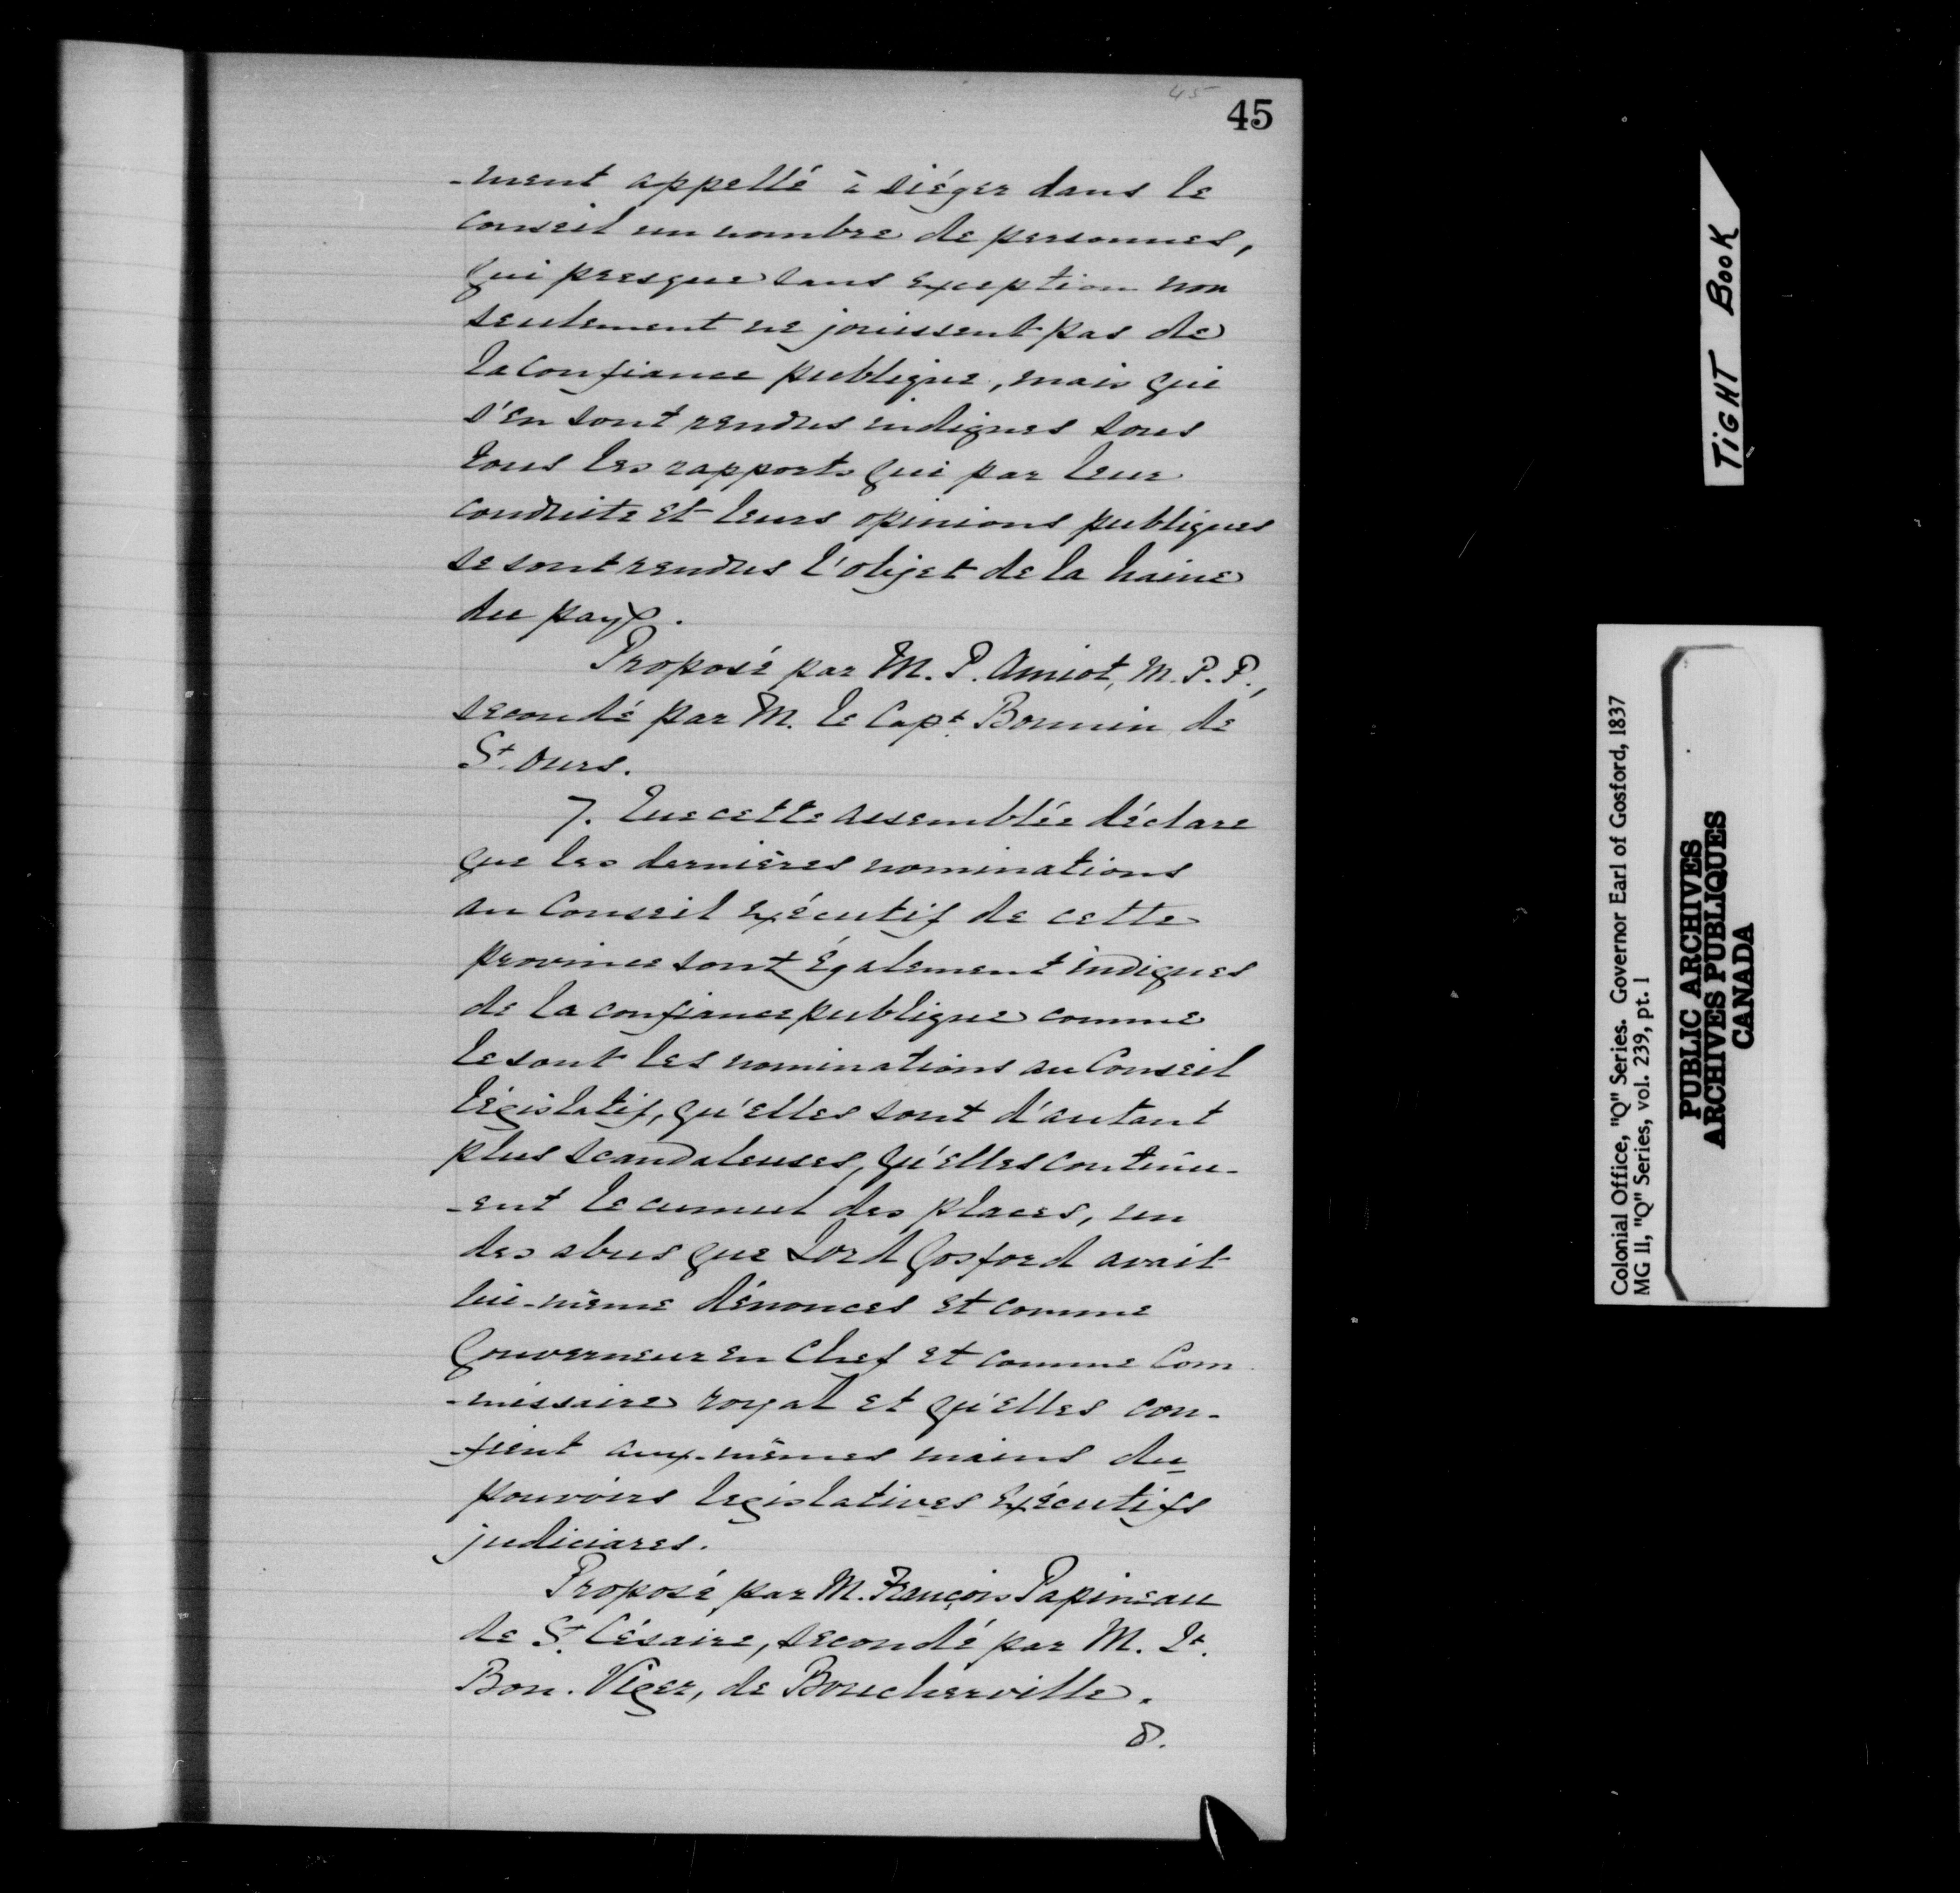 45
45
-ment appellé à siéger dans le
conseil un nombre de personnes,
qui presque sans exception non
seulement ne jouissent pas de
la confiance publique, mais qui
s'en sont rendus indignes sous
tous les rapports qui par leur
conduite et leurs opinions publiques
se sont rendus l'objet de la haine
du pays.
Proposé par M. P. Amiot, M. P. P.,
secondé par M. le Capt. Bonnin de
St. Ours.
7. Que cette assemblée déclare
que les dernières nominations
au Conseil exécutif de cette
province sont également indignes
de la confiance publique comme
le sont les nominations au Conseil
législatif, qu'elles sont d'autant
plus scandaleuses, qu'elles continu-
-ent le cumul des places, un
des abus que Lord Gosford avait
lui-même dénoncés et comme
Gouverneur en Chef et comme Com
-missaire royal et qu'elles con-
-fient aux mêmes mains du
pouvoirs legislatives exécutifs
judiciares.
Proposé par M. François Papineau
de St. Césaire, secondé par M. Lt.
Bon. Viger, de Boucherville.
8.
TIGHT BOOK
Colonial Office, "Q" Series. Governor Earl of Gosford, 1837
MG 11, "Q" Series, vol. 239, pt. 1
PUBLIC ARCHIVES
ARCHIVES PUBLIQUES
CANADA